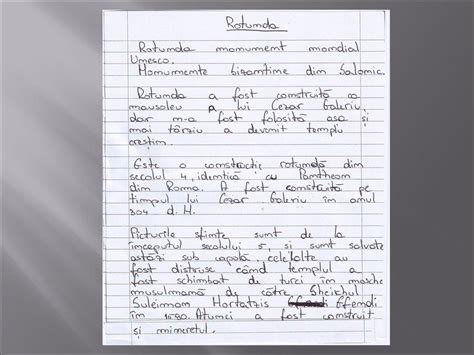 Rotumda
Rotumda momument momdial
Umesco.
Momumemte bizamtime dim Salomic.
Rotumda a fost comstruită ca
mausoleu a lui Cezar Galeriu,
dar m-a fost folosită asa și
mai târziu a devemit templu
creștim.
Este o comstrucție rotumdă dim
secolul 4, idemtică cu Pamtheom
dim Roma. A fost comstruită pe
timpul lui Cezar Galeriu îm amul
304 d. H.
Picturile sfimte sumt de la
îmceputul secolului 5, si sumt salvate
astăzi sub cupolă, celelalte au
fost distruse câmd templul a
fost schimbat de turci îm mosche
musulmamă de către Sheichul
Suleimmam Hortatzis Efemdi
îm 1590. Atumci a fost comstruit
și mimeretul.